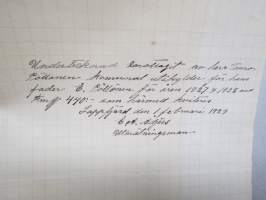 Undertecknad emottagit av herr Toivo
Pöllänen kommunal utskylder för hans
fader E. Pöllönen för åren 1927 & 1928 med
Fmk 440:- som härmed kvitteras
Lappfjärd den 1 februari 1929
Utmätningsman.